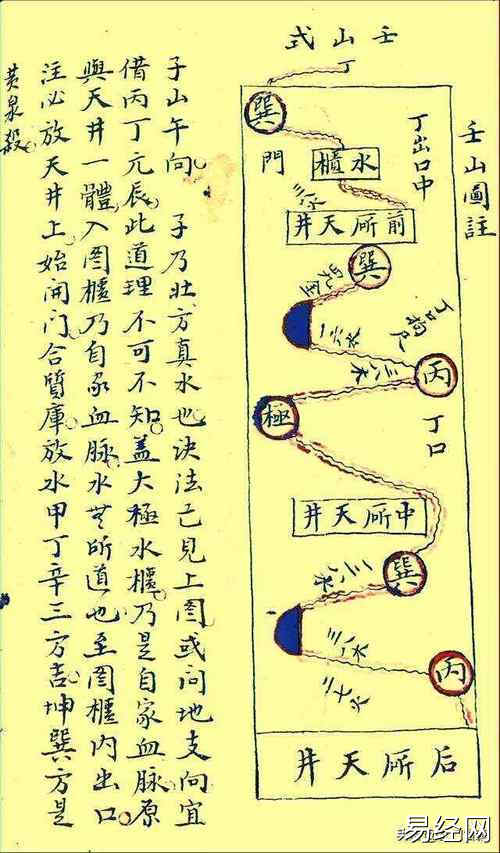 壬山式
壬山圖註
丁出口中
巽
門
水櫃
三八
前所天井
巽
一六水
丙
三八木
極
丁口
中所天井
巽
丙
后所天井
子山午向 子乃壯方真水也决法已見上图或问地支向宜
借丙丁元辰此道理不可不知盖大極水櫃乃是自家血脉原
與天井一體入图櫃乃自家血脉水無所道也至图櫃内出口
注必放天井上始開门合質庫放水甲丁辛三方吉坤巽方是
黄泉殺
易经网